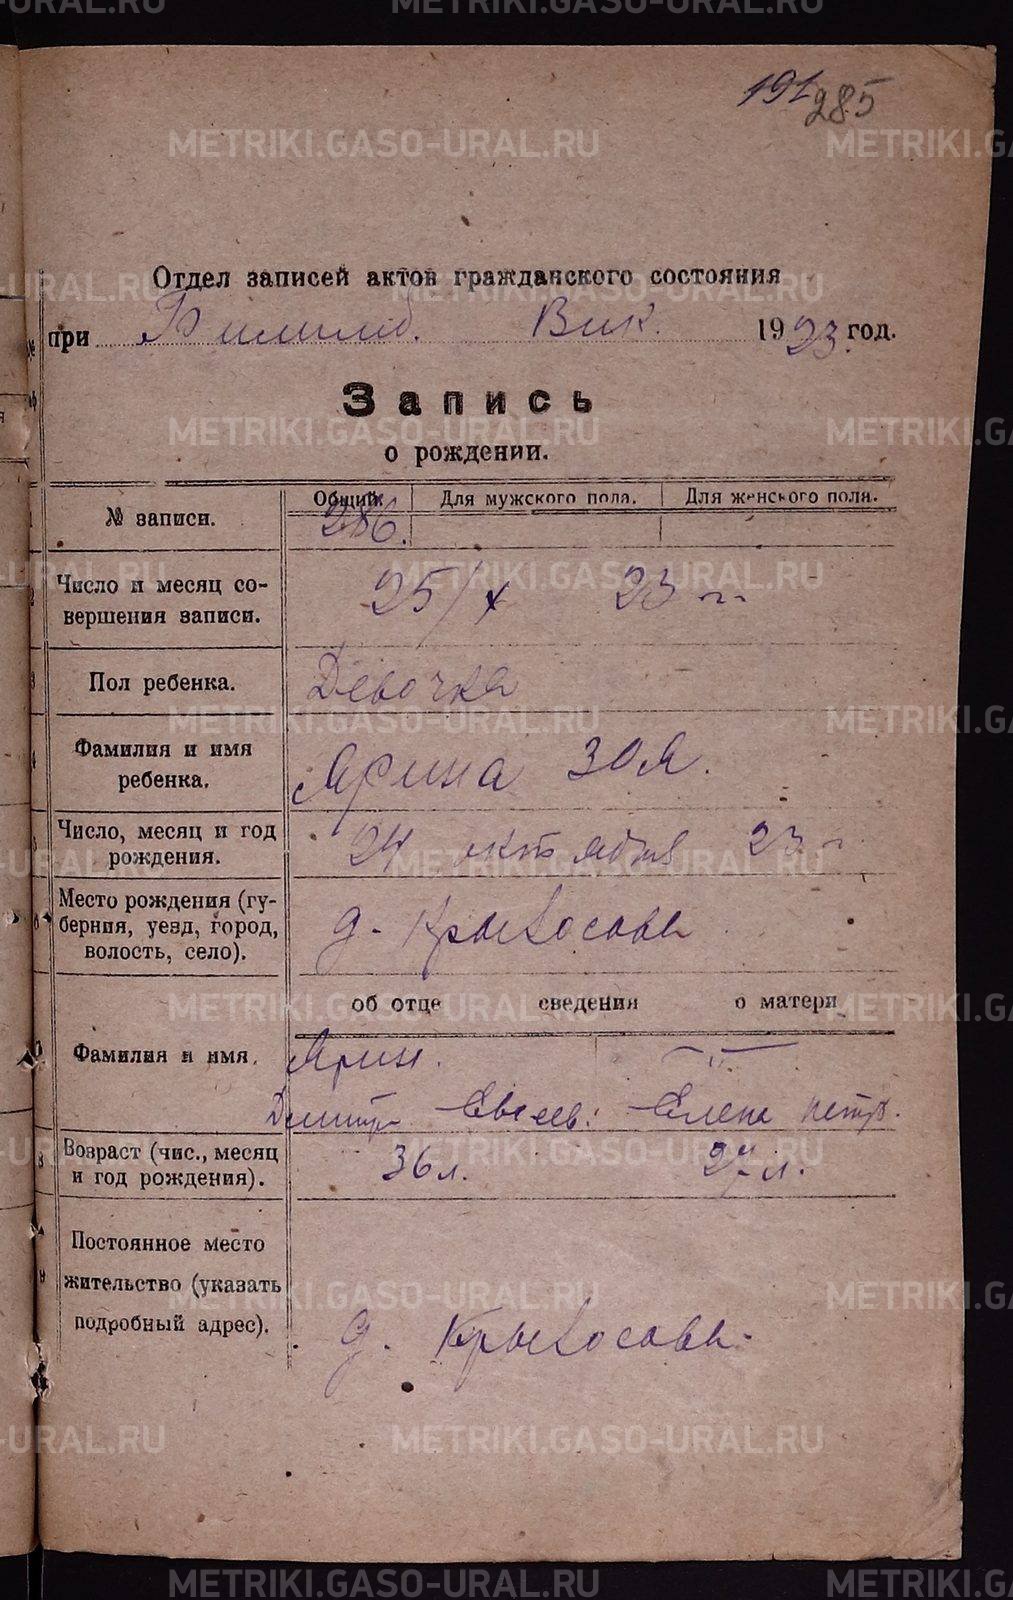 METRIKI.GASO-URAL.RU
191 285
Отдел записей актов гражданского состояния
при Билимб. Вик. 1923 год.
Запись
о рождении.
№ записи.
Общий. Для мужского пола. Для женского пола.
286.
Число и месяц совершения записи.
25/X 23 г.
Пол ребенка.
Девочка
Фамилия и имя
ребенка.
Ярина Зоя.
Число, месяц и год
рождения.
24 октября 23 г
Место рождения (гу-
берния, уезд, город,
волость, село).
д. Крылосова
об отце сведения о матери
Фамилия и имя.
Ярин. -"-
Дмитр Евсеев: Елена Петр.
Возраст (чис., месяц
и год рождения).
36 л. 27 л.
Постоянное место
жительство (указать
подробный адрес).
д. Крылосова.